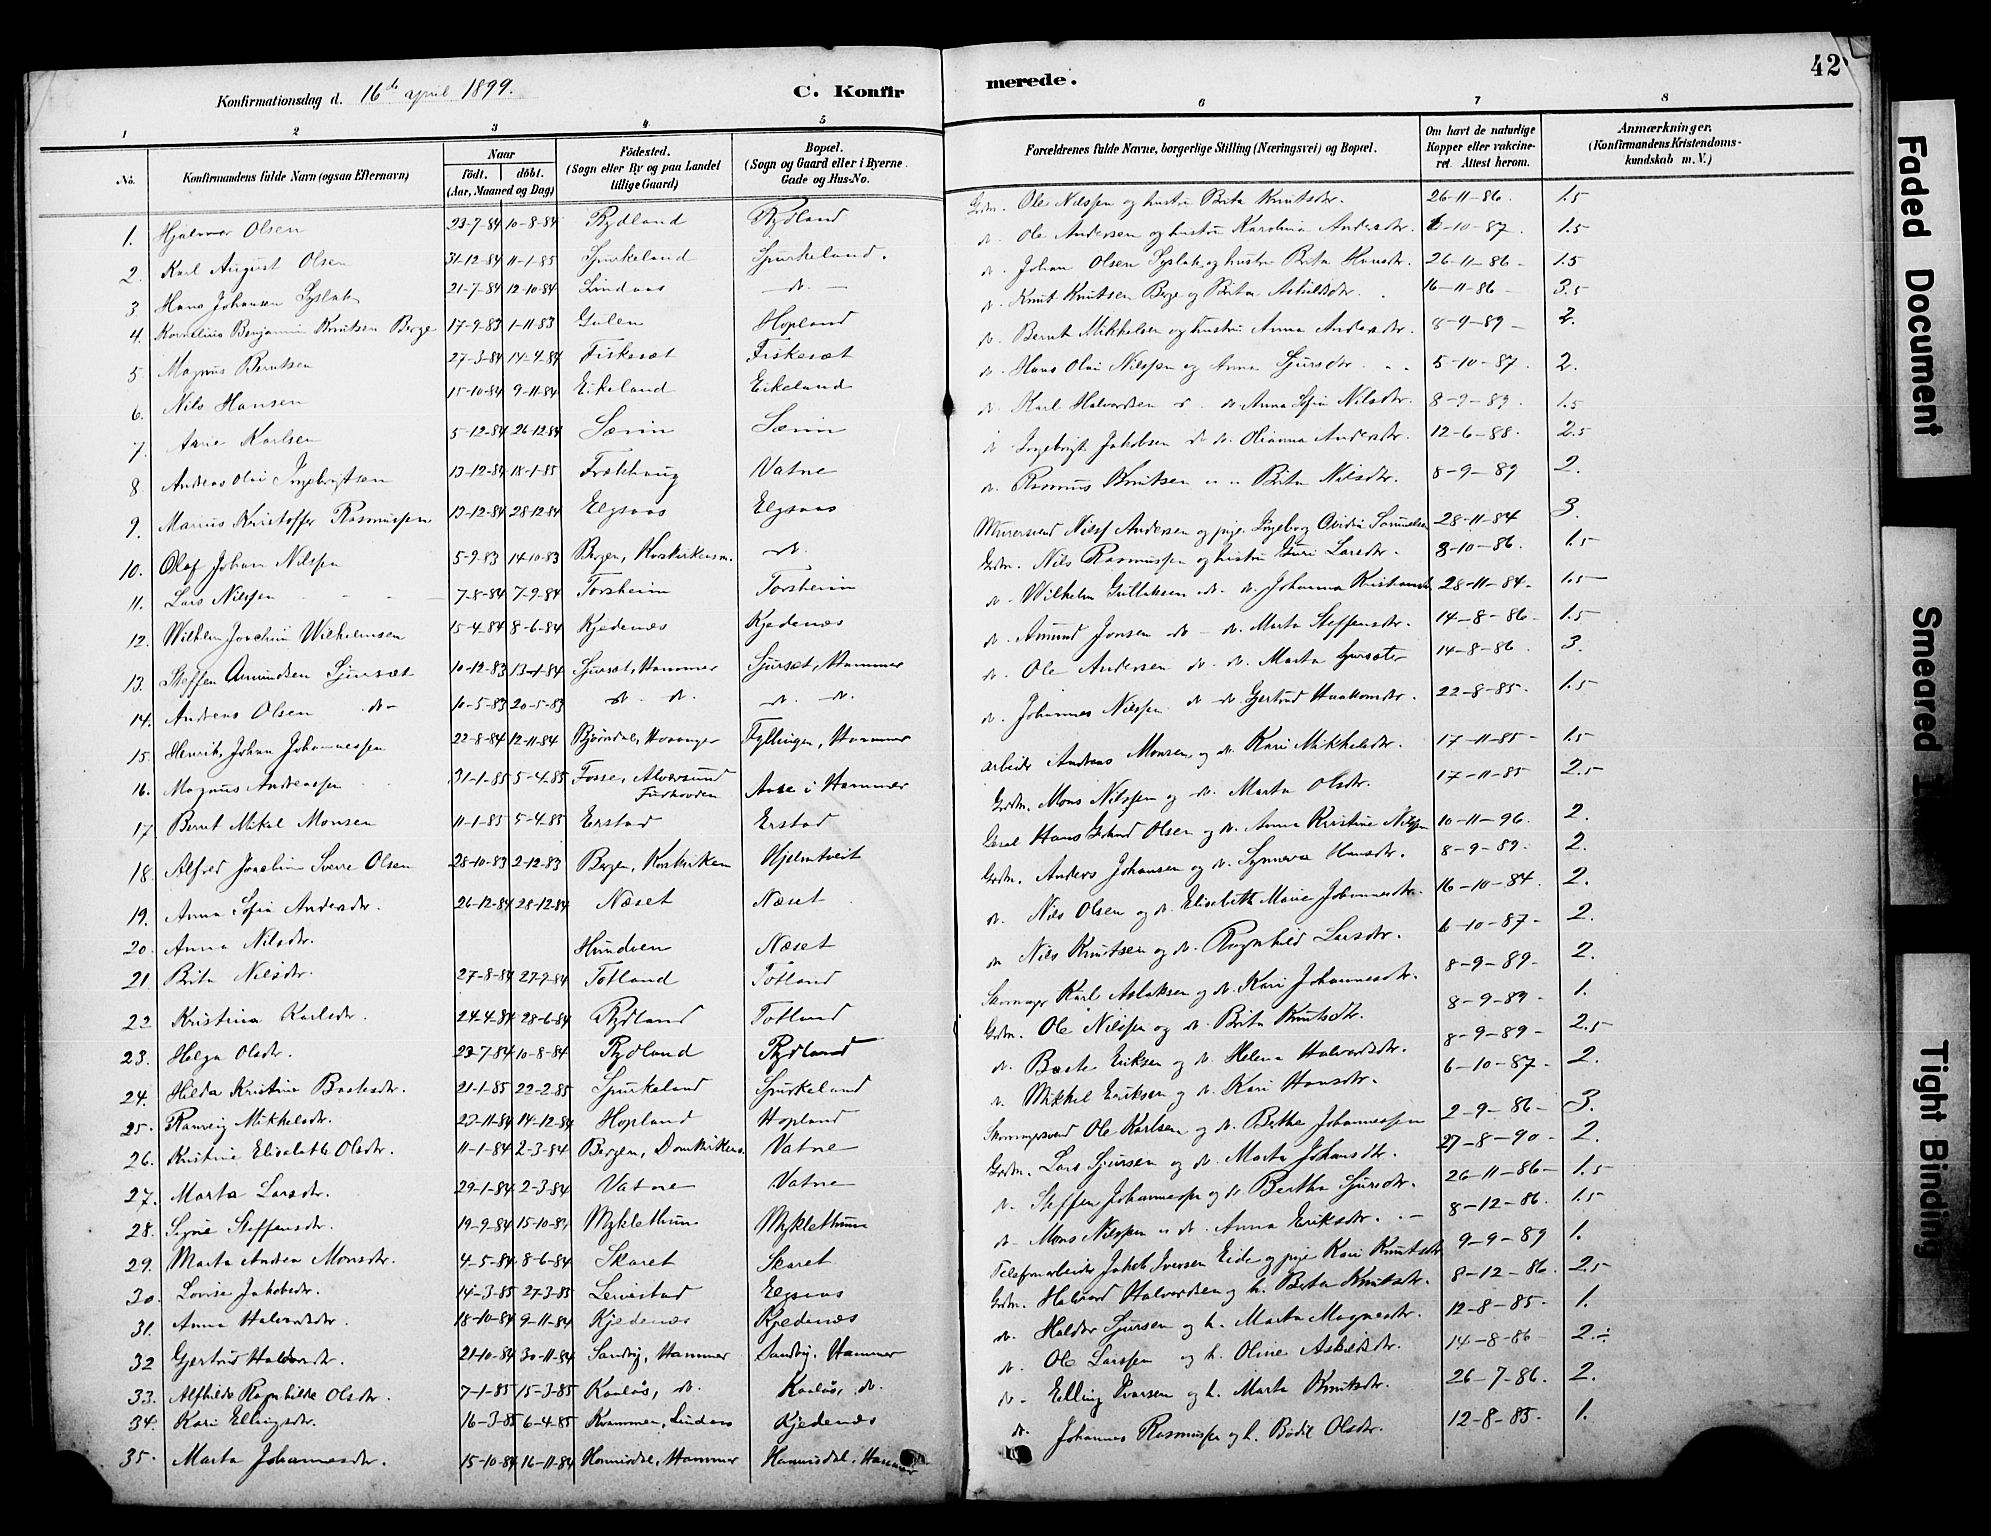 Konfirmationsdag d. 16de april 1899.
C. Konfirmerede.
42
1 2 3 4 5 6 7 8
No. Konfirmandens fulde Navn (ogsaa Efternavn) Naar født. døbt. (Aar, Maaned og Dag) Fødested. (Sogn eller By og paa Landet tillige Gaard) Bopæl. (Sogn og Gaard eller i Byerne Gade og Hus-No. Forældrenes fulde Navne, borgerlige Stilling (Næringsvei) og Bopæl. Om havt de naturlige Kopper eller vakcineret. Attest herom. Anmærkninger. (Konfirmandens Kristendomskundskab m. V.)
1. Hjalmar Olsen 23-7-84 10-8-84 Rydland Rydland Grdm. Ole Nilssen og hustru Brita Knutsdtr. 26-11-86. 1.5
2. Karl August Olsen 31-12-84 11-1-85 Spurkeland Spurkeland. d. Ole Andersen og hustru Karolina Andersdtr. 6-10-87. 1.5
3 Hans Johansen Syslak 21-7-84 12-10-84 Lindaas - d. - d. Johan Olsen Syslak og hustru Brita Hansdtr. 26-11-86 - 1.5
4. Kornelius Benjamin Knutsen Berge 17-9-83 1-11-83 Gulen Hopland d. Knut Knutsen Berge og Brita Askildsdtr. 16-11-86 - 3.5
5 Magnus Berntsen 27-3-84 14-4-84 Fiskesæt Fiskesæt d. Bernt Mikkelsen og hustru Anna Andersdtr. 8-9-89 - 2.
6. Nils Hansen 15-10-84 9-11-84 Eikeland Eikeland d. Hans Olai Nilssen og Anna Sjursdtr. 5-10-87. 2.
7 Arne Karlsen 5-12-84 26-12-84 Særvin Særvin d. Karl Halvordsen d. Anna Sofia Nilsdtr. 8-9-89. 1.5
8 Andreas Olai Ingebrigtsen 13-12-84 18-1-85 Vatne d. Ingebrigt Jakobsen d. d. Olianna Andersdtr. 12-6-88. 2.5
9. Marius Kristoffer Rasmussen 13-12-84 28-12-84 Elgsaas Elgsaas d. Rasmus Knutsen Brita Nilsdtr. 8-9-89 2.
10. Olaf Johan Nilssen 5-9-83 14-10-83 Bergen, Korskirkens m. d. Murersvend Andersen og pige Ingeborg Samuelsen 28-11-84 3.
11. Lars Nilssen 7-8-84 7-9-84 Torsheim Torsheim Grdm. Nils Rasmussen og hustru Guri Larsdtr. 3-10-86. 1.5
12. Wilhelm Joachim Wilhelmsen 15-4-84 8-6-84 Kjedenæs Kjedenæs d. Wilhelm Gulliksen d. Johanna Kristiansdtr 28-11-84. 1.5
13. Steffen Amundsen Sjursæt 10-12-83 13-1-84 Sjursæt, Hammer Sjursæt, Hammer d. Amund Jonsen d. Marta Steffensdtr. 14-8-86. 1.5
14. Andreas Olsen d. 10-5-83 20-5-83 d. d. d. d. d. Ole Andersen d. d. Marta Sjursdtr 14-8-86. 3.
15. Henrik Johan Johannessen 22-8-84 12-11-84 Bjørndal, Hosanger Fyllingen, Hammer d. Johannes Nilssen d. d. Gjertrud Haakonsdtr. 22-8-85. 1.5
16. Magnus Andreassen 31-1-85 5-4-85 Fosse, Alversund Furhovden Aase i Hammer Arbeider Andreas Monsen og d. Kari Mikkelsdtr. 17-11-85 - 1.5
17 Bernt Mikal Monsen 11-1-85 5-4-85 Erstad Erstad Grdm. Mons Nilssen og d. Marta Olsdtr. 17-11-85 2.5
18. Alfred Joachim Sverre Olsen 28-10-83 2-12-83 Bergen, Korskirken Hjelmtveit Hans Olsen og d. Anna Kristine Nilssen 10-11-96. 2.
19. Anna Sofia Andersdtr. 26-12-84 28-12-84 Næset Næset Grdm. Anders Johansen og d. Synneva Hansdtr. 8-9-89. 2.
20. Anna Nilsdtr. Hundven Næset d. Nils Olsen og d. Elisabeth Marie Johannesdtr. 16-10-84. 2.
21 Brita Nilsdtr. 27-8-84 27-9-84 Totland Totland d. Nils Knutsen og d. Ragnhild Larsdtr. 6-10-87 - 2.
22 Kristina Karlsdtr. 24-4-84 28-6-84 Rydland Totland Skomager Karl Aslaksen og d. Kari Johannesdtr. 8-9-89. 2.
23. Helga Olsdtr. 23-7-84 10-8-84 Rydland Rydland Grdm. Ole Nilssen og d. Brita Knutsdtr. 8-9-89 - 1.
24. Hilda Kristine Baardsdtr. 21-1-85 22-2-85 Spurkeland Spurkeland d. Eriksen og d. Helena Halvordsdtr. 8-9-89 - 2.5
25. Ranveig Mikkelsdtr. 23-11-84 14-12-84 Hopland Hopland d. Mikkel Eriksen og d. Kari Hansdtr. 6-10-87. 2.
26. Kristine Elisabeth Olsdtr. 11-1-84 2-3-84 Bergen, Domkirkens. Vatne Skomagersvend Ole Karlsen og d. Berthe Johannessen 2-9-86 - 3.
27. Marta Larsdtr. 29-1-84 2-3-84 Vatne Vatne Grdm. Lars Sjursen og d. Marta Johansdtr. 27-8-90 - 2.
28. Signe Steffensdtr. 19-9-84 15-10-84 Myklethun Myklethun d. Steffen Johannessen og d. Bertha Sjursdtr. 26-11-86 - 1.5
29. Marta Andrea Monsdtr. 4-5-84 8-6-84 Skaret Skaret d. Mons Nilssen d. Anna Eriksdtr. 8-12-86. 1.5
30. Lovise Jakobsdtr. 14-3-85 27-3-85 Leivestad Elgsaas Telefonarbeider Jakob Iversen Eide og pige Kari Knutsdtr 9-9-89 1.
31. Anna Halvordsdtr. 18-10-84 9-11-84 Kjedenæs Kjedenæs Grdm. Halvord Halvordsen og h. Brita Knutsdtr. 8-12-86. 2.5
32 Gjertrud Haldorsdtr. 21-10-84 30-11-84 Sandvig, Hammer Sandvig, Hammer d. Haldor Sjursen og h. Marta Magnesdtr. 12-8-85. 1.
33. Alfhilde Ragnhilde Olsdtr. 7-1-85 15-3-85 Kaalaas, d. Kaalaas, d. d. Ole Larssen og h. Oline Askildsdtr. 14-8-86 - 2.÷
34. Kari Ellingsdtr. 16-3-85 6-4-85 Kvammen, Lindaas Kjedenæs d. Elling Ivarsen og h. Marta Knutsdtr. 26-7-86. 2.
35. Marta Johannesdtr. 15-10-84 16-11-84 Hannisdal, Hammer Hannisdal, Hammer d. Johannes Rasmussen og h. Bødil Olsdtr. 12-8-85. 1.
Faded Document
Smeared
Tight Binding